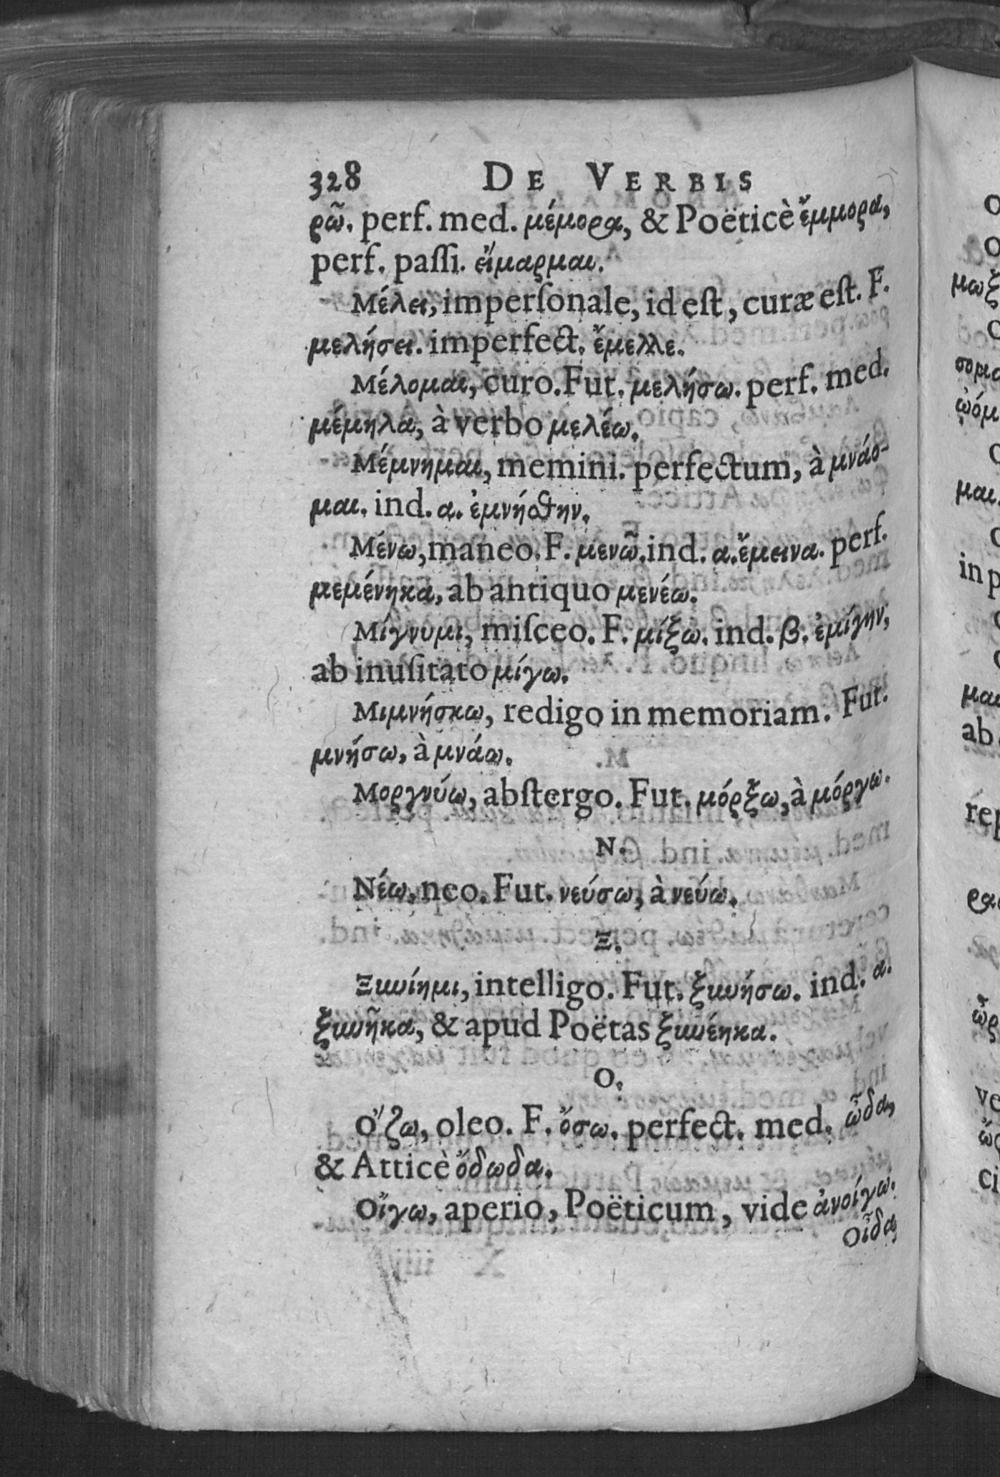 328 DE VERBIS
ρῶ. perf. med. μέμορα, & Poëticè ἔμμορα,
perf. paſſi. εἵμαρμαι.
Μέλει, imperſonale, id eſt, curæ eſt. F.
μελήσει. imperfect. ἔμελλε.
Μέλομαι, curo. Fut. μελήσω. perf. med.
μέμηλα, à verbo μελέω.
Μέμνημαι, memini. perfectum, à μνάο-
μαι. ind. α. ἐμνήσθην.
Μένω, maneo. F. μενῶ. ind. α. ἔμεινα. perf.
μεμένηκα, ab antiquo μενέω.
Μίγνυμι, miſceo. F. μίξω. ind. β. ἐμίγην,
ab inuſitato μίγω.
Μιμνήσκω, redigo in memoriam. Fut.
μνήσω, à μνάω.
Μοργνύω, abſtergo. Fut. μόρξω, à μόργω.
Ν.
Νέω, neo. Fut. νεύσω, à νεύω.
Ξ.
Ξυνίημι, intelligo. Fut. ξυνήσω. ind. α.
ξυνῆκα, & apud Poëtas ξυνέηκα.
Ο.
Ὄζω, oleo. F. ὄσω. perfect. med. ὦδα,
& Atticè ὄδωδα.
Οἴγω, aperio, Poëticum, vide ἀνοίγω.
Οἶδα